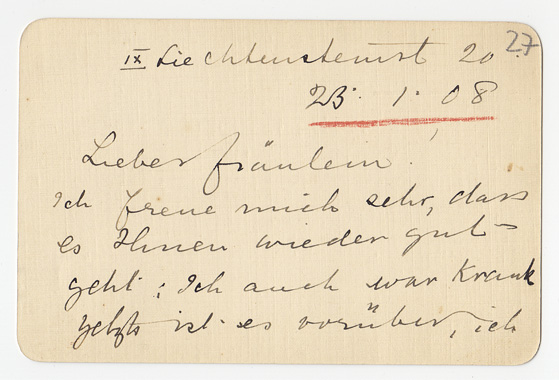 27
IX Liechtensteinst 20.
23. 1. 08
Lieber Fräulein!
Ich freue mich sehr, dass
es Ihnen wieder gut
geht; Ich auch war Krank
jetzt ist es vorüber, ich